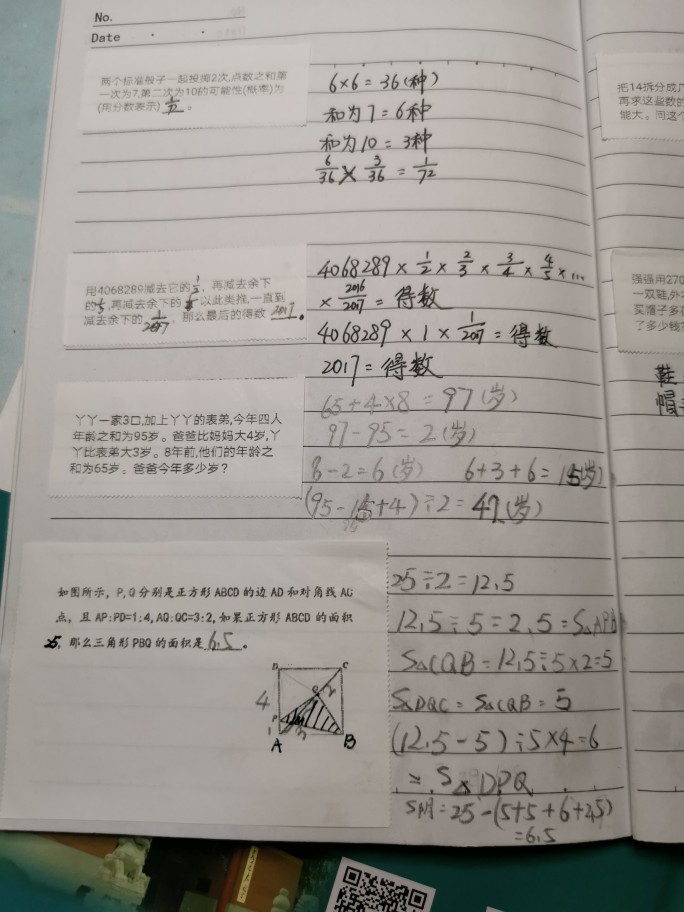 No.
Date
两个标准骰子一起投掷2次,点数之和第
一次为7,第二次为10的可能性(概率)为
(用分数表示) 1/72 。
6×6=36(种)
和为7=6种
和为10=3种
6/36 × 3/36 = 1/72
用4068289减去它的1/2, 再减去余下
的1/3,再减去余下的 以此类推,一直到
减去余下的 1/2017, 那么最后的得数 2017 。
4068289 × 1/2 × 2/3 × 3/4 × 4/5 × ...
× 2016/2017 = 得数
4068289 × 1 × 1/2017 = 得数
2017 = 得数
丫丫一家3口,加上丫丫的表弟,今年四人
年龄之和为95岁。爸爸比妈妈大4岁,丫
丫比表弟大3岁。8年前,他们的年龄之
和为65岁。爸爸今年多少岁?
65+4×8=97(岁)
97-95=2(岁)
8-2=6(岁) 6+3+6=15(岁)
(95-15+4)÷2=42(岁)
如图所示, P,Q分别是正方形ABCD的边AD和对角线AC
点, 且AP:PD=1:4,AQ:QC=3:2,如果正方形ABCD的面积
25, 那么三角形PBQ的面积是 6.5 。
D C
4 Q 2
P 3
1
A B
25÷2=12.5
12.5÷5=2.5=S△APB
S△CQB=12.5÷5×2=5
S△DQC=S△CQB=5
(12.5-5)÷5×4=6
=S△DPQ
S阴=25-(5+5+6+2.5)
=6.5
把14拆分成几
再求这些数的
能大。问这个
强强用270
一双鞋,外
买帽子多花
了多少钱?
鞋
帽